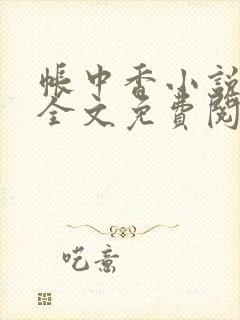 帐中香小说
全文免费阅
呓意